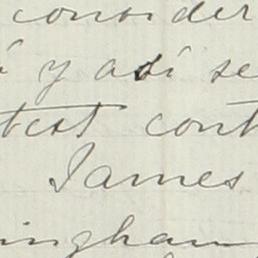 consider
í y así se
test cont
James
ingham